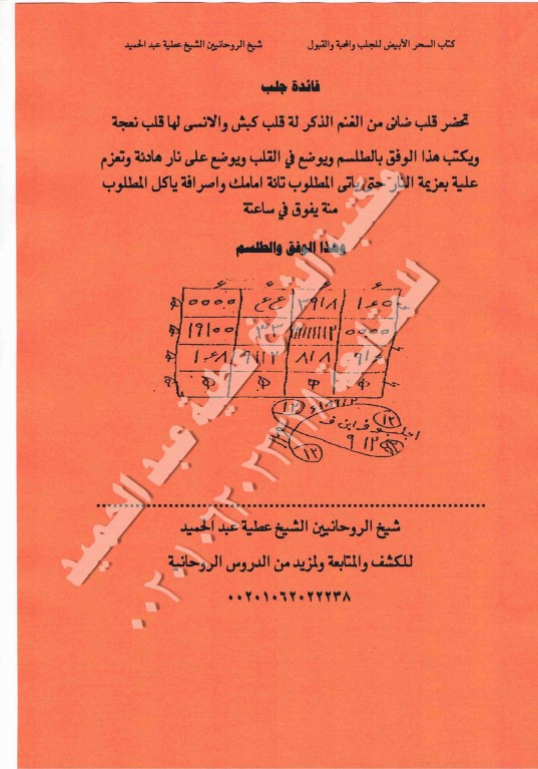 كتاب السحر الأبيض للجلب والمحبة والقبول شيخ الروحانيين الشيخ عطية عبد الحميد
فائدة جلب
تحضر قلب ضانى من الغنم الذكر لة قلب كبش والانسى لها قلب نعجة
ويكتب هذا الوفق بالطلسم ويوضع في القلب ويوضع على نار هادئة وتعزم
علية بعزيمة النار حتى ياتى المطلوب تائة امامك واصرافة ياكل المطلوب
منة يفوق في ساعتة
وهذا الوفق والطلسم
٣٩١٨
١٩١٠٠ ٣٣
٨١٨ ٩١١٢
١٣
١٢
٩١٢
١٢
شيخ الروحانيين الشيخ عطية عبد الحميد
للكشف والمتابعة ولمزيد من الدروس الروحانية
٠٠٢٠١٠٦٢٠٢٢٢٣٨
مكتبة الشيخ عطية عبد الحميد
للمتابعة ٠٠٢٠١٠٦٢٠٢٢٢٣٨